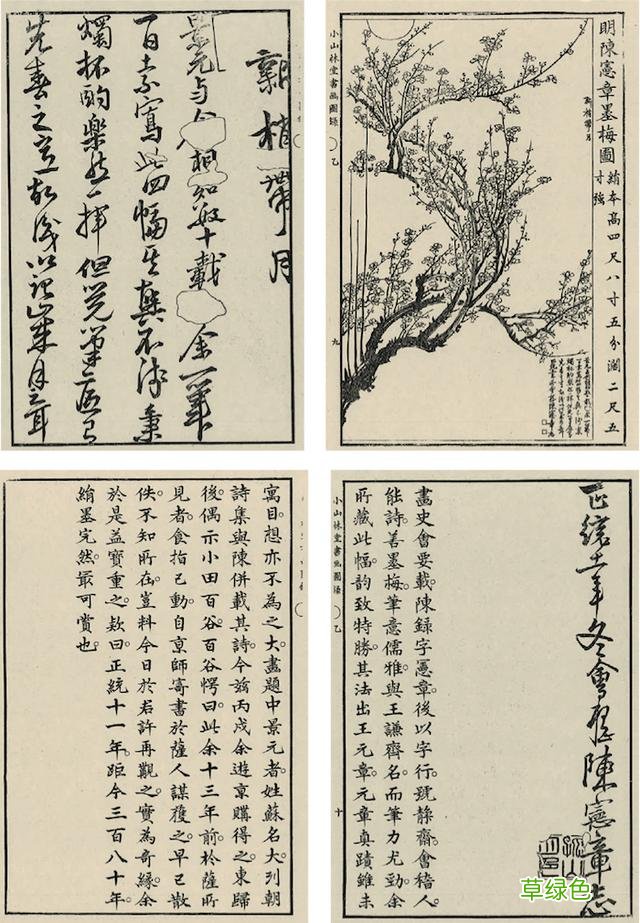 明陳憲章墨梅圖 絹本高四尺八寸五分濶二尺五
寸強
新梢帶月
小山林堂書画圖録 乙
九
新梢帶月
景元与 相知數十載 余一筆
寫此四幅其興不淺秉
燭杯酌樂然一揮但覺筆
春之意
正統十一年冬會稽陳憲章志
畫史會要載。陳録字憲章。後以字行。號靜齋。會稽人。
能詩善墨梅。筆意儒雅。與王謙齊名。而筆力尤勁。余
所藏此幅。韵致特勝。其法出王元章。元章真蹟雖未
小山林堂書画圖録 乙
十
寓目。想亦不為之大。畫題中景元者。姓蘇名大。列朝
詩集與陳併載其詩。今茲丙戌。余遊京購得之。東歸
後偶示小田百谷。百谷愕曰。此余十三年前。於薩所
見者。食指已動。自京師寄書於薩人謀獲之。早已散
佚。不知所在。豈料今日於君許再觀之。實為奇縁。余
於是益寶重之。款曰。正統十一年。距今三百八十年。
絹墨完然。最可賞也。
草绿色